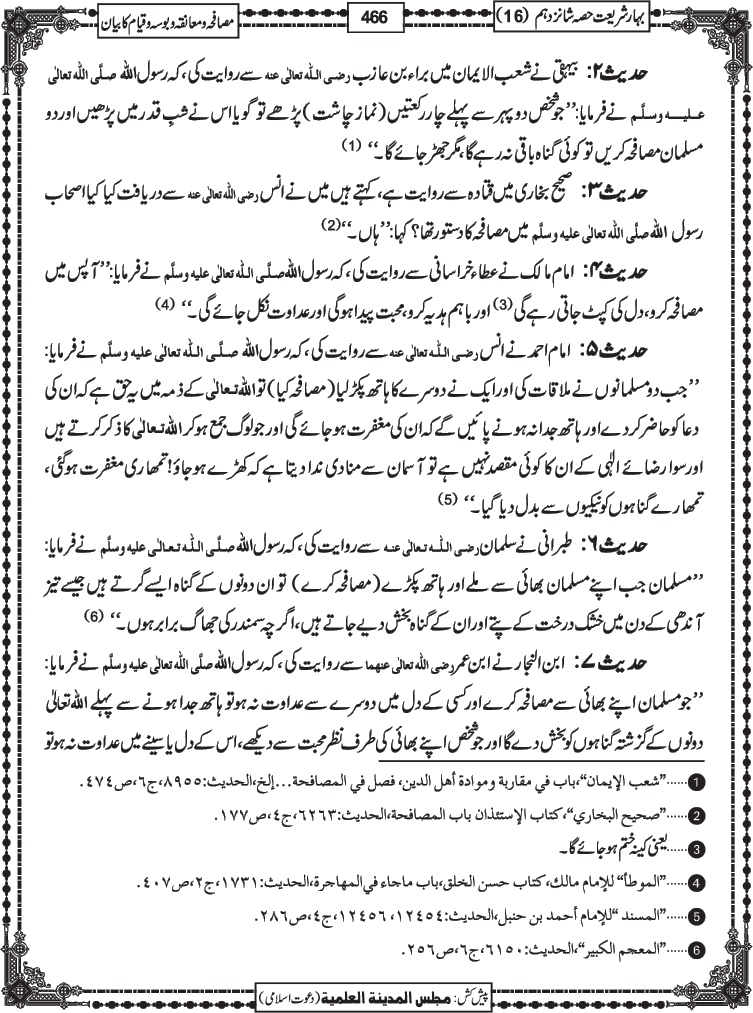 بہارِ شریعت حصہ شانزدہم (16)
466
مصافحہ و معانقہ و بوسہ و قیام کا بیان
حدیث ۲: بیہقی نے شعب الایمان میں براء بن عازب رضی اللہ تعالٰی عنہ سے روایت کی، کہ رسول اللہ صلَّی اللہ تعالٰی
علیہ وسلَّم نے فرمایا: ’’جو شخص دوپہر سے پہلے چار رکعتیں (نمازِ چاشت) پڑھے تو گویا اس نے شبِ قدر میں پڑھیں اور دو
مسلمان مصافحہ کریں تو کوئی گناہ باقی نہ رہے گا، مگر جھڑ جائے گا۔‘‘ (1)
حدیث ۳: صحیح بخاری میں قتادہ سے روایت ہے، کہتے ہیں میں نے انس رضی اللہ تعالٰی عنہ سے دریافت کیا کیا اصحاب
رسول اللہ صلَّی اللہ تعالٰی علیہ وسلَّم میں مصافحہ کا دستور تھا؟ کہا: ’’ہاں۔‘‘ (2)
حدیث ۴: امام مالک نے عطاء خراسانی سے روایت کی، کہ رسول اللہ صلَّی اللہ تعالٰی علیہ وسلَّم نے فرمایا: ’’آپس میں
مصافحہ کرو، دل کی کپٹ جاتی رہے گی (3) اور باہم ہدیہ کرو، محبت پیدا ہوگی اور عداوت نکل جائے گی۔‘‘ (4)
حدیث ۵: امام احمد نے انس رضی اللہ تعالٰی عنہ سے روایت کی، کہ رسول اللہ صلَّی اللہ تعالٰی علیہ وسلَّم نے فرمایا:
’’جب دو مسلمانوں نے ملاقات کی اور ایک نے دوسرے کا ہاتھ پکڑ لیا (مصافحہ کیا) تو اللہ تعالٰی کے ذمہ میں یہ حق ہے کہ ان کی
دعا کو حاضر کر دے اور ہاتھ جدا نہ ہونے پائیں گے کہ ان کی مغفرت ہو جائے گی اور جو لوگ جمع ہو کر اللہ تعالٰی کا ذکر کرتے ہیں
اور سوا رضائے الٰہی کے ان کا کوئی مقصد نہیں ہے تو آسمان سے منادی ندا دیتا ہے کہ کھڑے ہو جاؤ! تمھاری مغفرت ہوگئی،
تمھارے گناہوں کو نیکیوں سے بدل دیا گیا۔‘‘ (5)
حدیث ۶: طبرانی نے سلمان رضی اللہ تعالٰی عنہ سے روایت کی، کہ رسول اللہ صلَّی اللہ تعالٰی علیہ وسلَّم نے فرمایا:
’’مسلمان جب اپنے مسلمان بھائی سے ملے اور ہاتھ پکڑے (مصافحہ کرے) تو ان دونوں کے گناہ ایسے گرتے ہیں جیسے تیز
آندھی کے دن میں خشک درخت کے پتے اور ان کے گناہ بخش دیے جاتے ہیں، اگرچہ سمندر کی جھاگ برابر ہوں۔‘‘ (6)
حدیث ۷: ابن النجار نے ابن عمر رضی اللہ تعالٰی عنہما سے روایت کی، کہ رسول اللہ صلَّی اللہ تعالٰی علیہ وسلَّم نے فرمایا:
’’جو مسلمان اپنے بھائی سے مصافحہ کرے اور کسی کے دل میں دوسرے سے عداوت نہ ہو تو ہاتھ جدا ہونے سے پہلے اللہ تعالٰی
دونوں کے گزشتہ گناہوں کو بخش دے گا اور جو شخص اپنے بھائی کی طرف نظرِ محبت سے دیکھے، اس کے دل یا سینے میں عداوت نہ ہو تو
1 ......’’شعب الإيمان‘‘، باب في مقاربة وموادة أهل الدين، فصل في المصافحة...إلخ، الحديث: ٨٩٥٥، ج٦، ص٤٧٤.
2 ......’’صحيح البخاري‘‘، كتاب الإستئذان باب المصافحة، الحديث: ٦٢٦٣، ج٤، ص١٧٧.
3 ......یعنی کینہ ختم ہو جائے گا۔
4 ......’’الموطأ‘‘ للإمام مالك، كتاب حسن الخلق، باب ماجاء في المهاجرة، الحديث: ١٧٣١، ج٢، ص٤٠٧.
5 ......’’المسند‘‘ للإمام أحمد بن حنبل، الحديث: ١٢٤٥٤، ١٢٤٥٦، ج٤، ص٢٨٦.
6 ......’’المعجم الكبير‘‘، الحديث: ٦١٥٠، ج٦، ص٢٥٦.
پیش کش: مجلس المدينة العلمية (دعوتِ اسلامی)